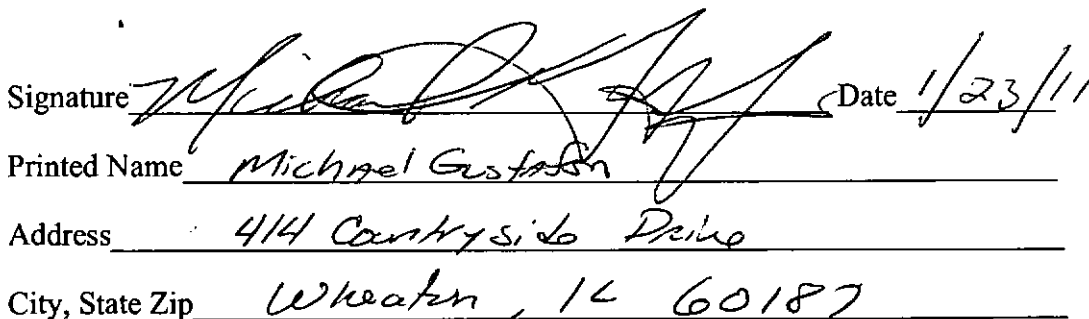 Signature Date 1/23/11
Printed Name Michael Gustafson
Address 414 Countryside Drive
City, State Zip Wheaton, IL 60187